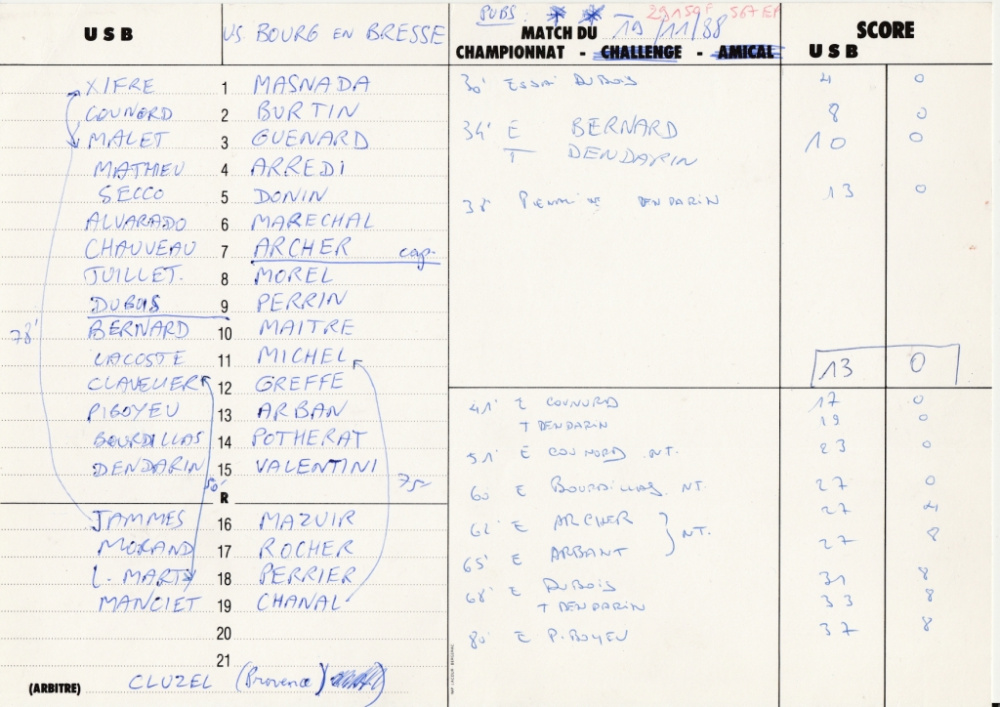 USB
US. BOURG EN BRESSE
PUBS:
29159F 567 EP
MATCH DU 19/11/88
CHAMPIONNAT - CHALLENGE - AMICAL
SCORE
USB
XIFRE 1 MASNADA
COUNORD 2 BURTIN
MALET 3 GUENARD
MATHIEU 4 ARREDI
SECCO 5 DONIN
ALVARADO 6 MARECHAL
CHAUVEAU 7 ARCHER cap.
JUILLET. 8 MOREL
DUBOIS 9 PERRIN
BERNARD 10 MAITRE
LACOSTE 11 MICHEL
CLAVELIER 12 GREFFE
PIBOYEU 13 ARBAN
BOURDILLAS 14 POTHERAT
DENDARIN 15 VALENTINI
78'
50'
75'
R
JAMMES 16 MAZUIR
MORAND 17 ROCHER
L. MARTY 18 PERRIER
MANCIET 19 CHANAL
20
21
(ARBITRE) CLUZEL (Provence)
30' ESSAI DUBOIS 4 0
8 0
34' E BERNARD
T DENDARIN 10 0
38' DENDARIN 13 0
13 0
41' E COUNORD 17 0
T DENDARIN 19 0
51' E COUNORD .NT. 23 0
60 E BOURDILLAS. NT. 27 0
62' E ARCHER 27 4
NT.
65' E ARBANT 27 8
68' E DUBOIS 31 8
T DENDARIN 33 8
80' E PIBOYEU 37 8